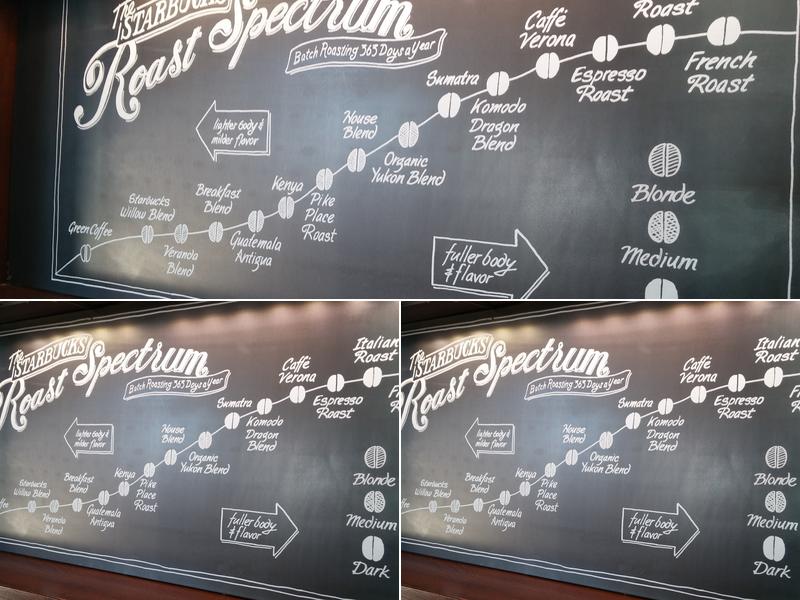 The STARBUCKS
Roast Spectrum
Batch Roasting 365 Days a Year
Roast
Caffè
Verona
Espresso
Roast
French
Roast
Sumatra
Komodo
Dragon
Blend
House
Blend
Organic
Yukon Blend
lighter body &
milder flavor
Kenya
Pike
Place
Roast
Breakfast
Blend
Guatemala
Antigua
Starbucks
Willow Blend
Veranda
Blend
Green Coffee
fuller body
& flavor
Blonde
Medium
The STARBUCKS
Roast Spectrum
Batch Roasting 365 Days a Year
Italian
Roast
Caffè
Verona
Espresso
Roast
Sumatra
Komodo
Dragon
Blend
House
Blend
Organic
Yukon Blend
lighter body &
milder flavor
Kenya
Pike
Place
Roast
Breakfast
Blend
Guatemala
Antigua
Starbucks
Willow Blend
Veranda
Blend
fuller body
& flavor
Blonde
Medium
Dark
The STARBUCKS
Roast Spectrum
Batch Roasting 365 Days a Year
Italian
Roast
Caffè
Verona
Espresso
Roast
Sumatra
Komodo
Dragon
Blend
House
Blend
Organic
Yukon Blend
lighter body &
milder flavor
Kenya
Pike
Place
Roast
Breakfast
Blend
Guatemala
Antigua
Starbucks
Willow Blend
Veranda
Blend
fuller body
& flavor
Blonde
Medium
Dark